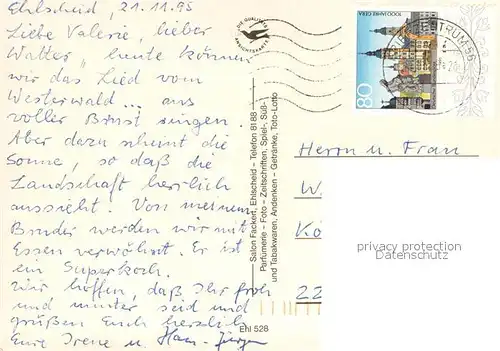 Ehlscheid, 21.11.95
Liebe Valerie, lieber
Walter, heute können
wir das Lied vom
Westerwald... aus
voller Brust singen.
Aber dazu scheint die
Sonne, so daß die
Landschaft herrlich
aussieht. Von meinem
Bruder werden wir mit
Essen verwöhnt. Er ist
ein Superkoch.
Wir hoffen, daß Ihr froh
und munter seid und
grüßen Euch herzlich
Eure Irene u. Hans-Jürgen
Ehl 528
Salon Fackert, Ehlscheid - Telefon 81 88
Parfümerie - Foto - Zeitschriften, Spiel-, Süß-
und Tabakwaren, Andenken - Getränke, Toto-Lotto
DIE QUALITÄTS
ANSICHTSKARTE
1000 JAHRE GERA
80
ZENTRUM 56
Herrn u. Frau
W
Kö
22
privacy protection
Datenschutz